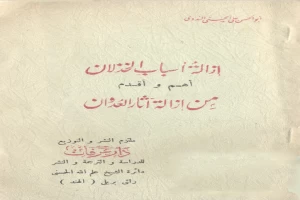 ابو الحسن علي الحسني الندوي
ازالة أسباب الخذلان
أهم و أقدم
من ازالة آثار العدوان
ملتزم النشر و التوزيع
دار عرفات
للدراسة و الترجمة و النشر
دائرة الشيخ علم الله الحسني
رائي بريلي ( الهند )